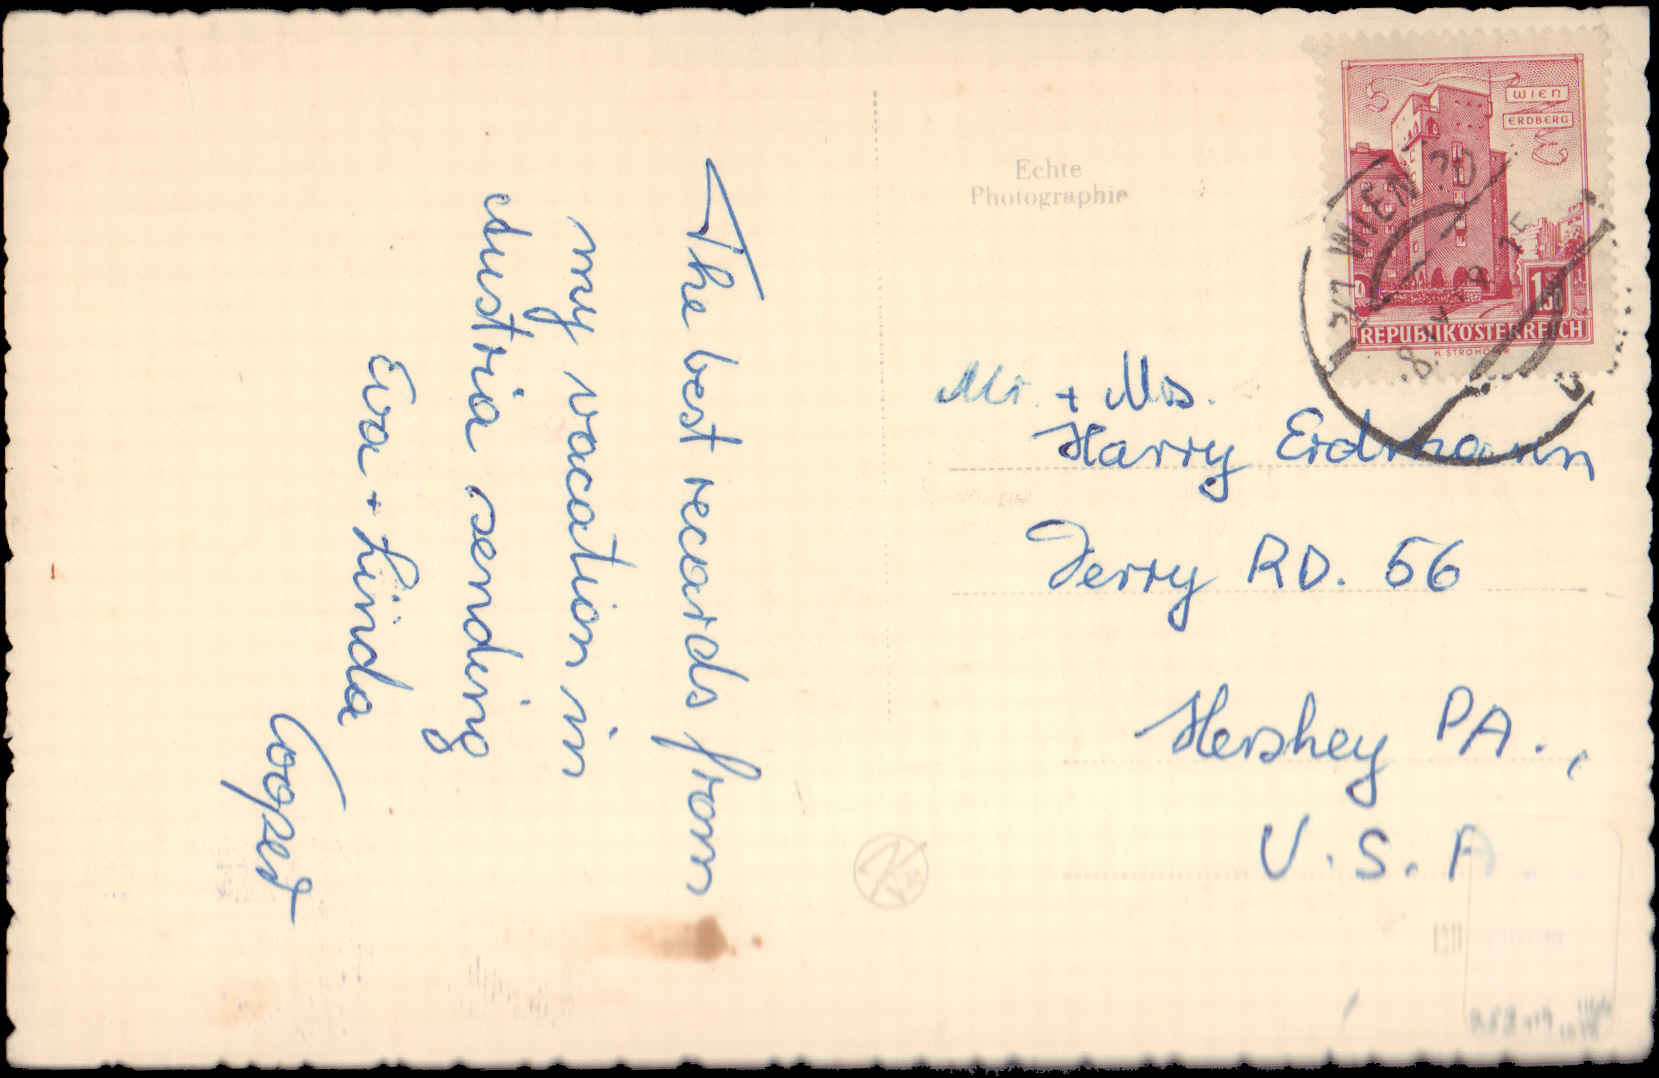 The best recards from
my vacation in
Austria sending
Eva + Linda
Cooper
Echte
Photographie
WIEN
ERDBERG
1.50
REPUBLIK ÖSTERREICH
WIEN
Mr. + Mrs.
Harry Erdmann
Derry RD. 56
Hershey PA.,
U.S.A.